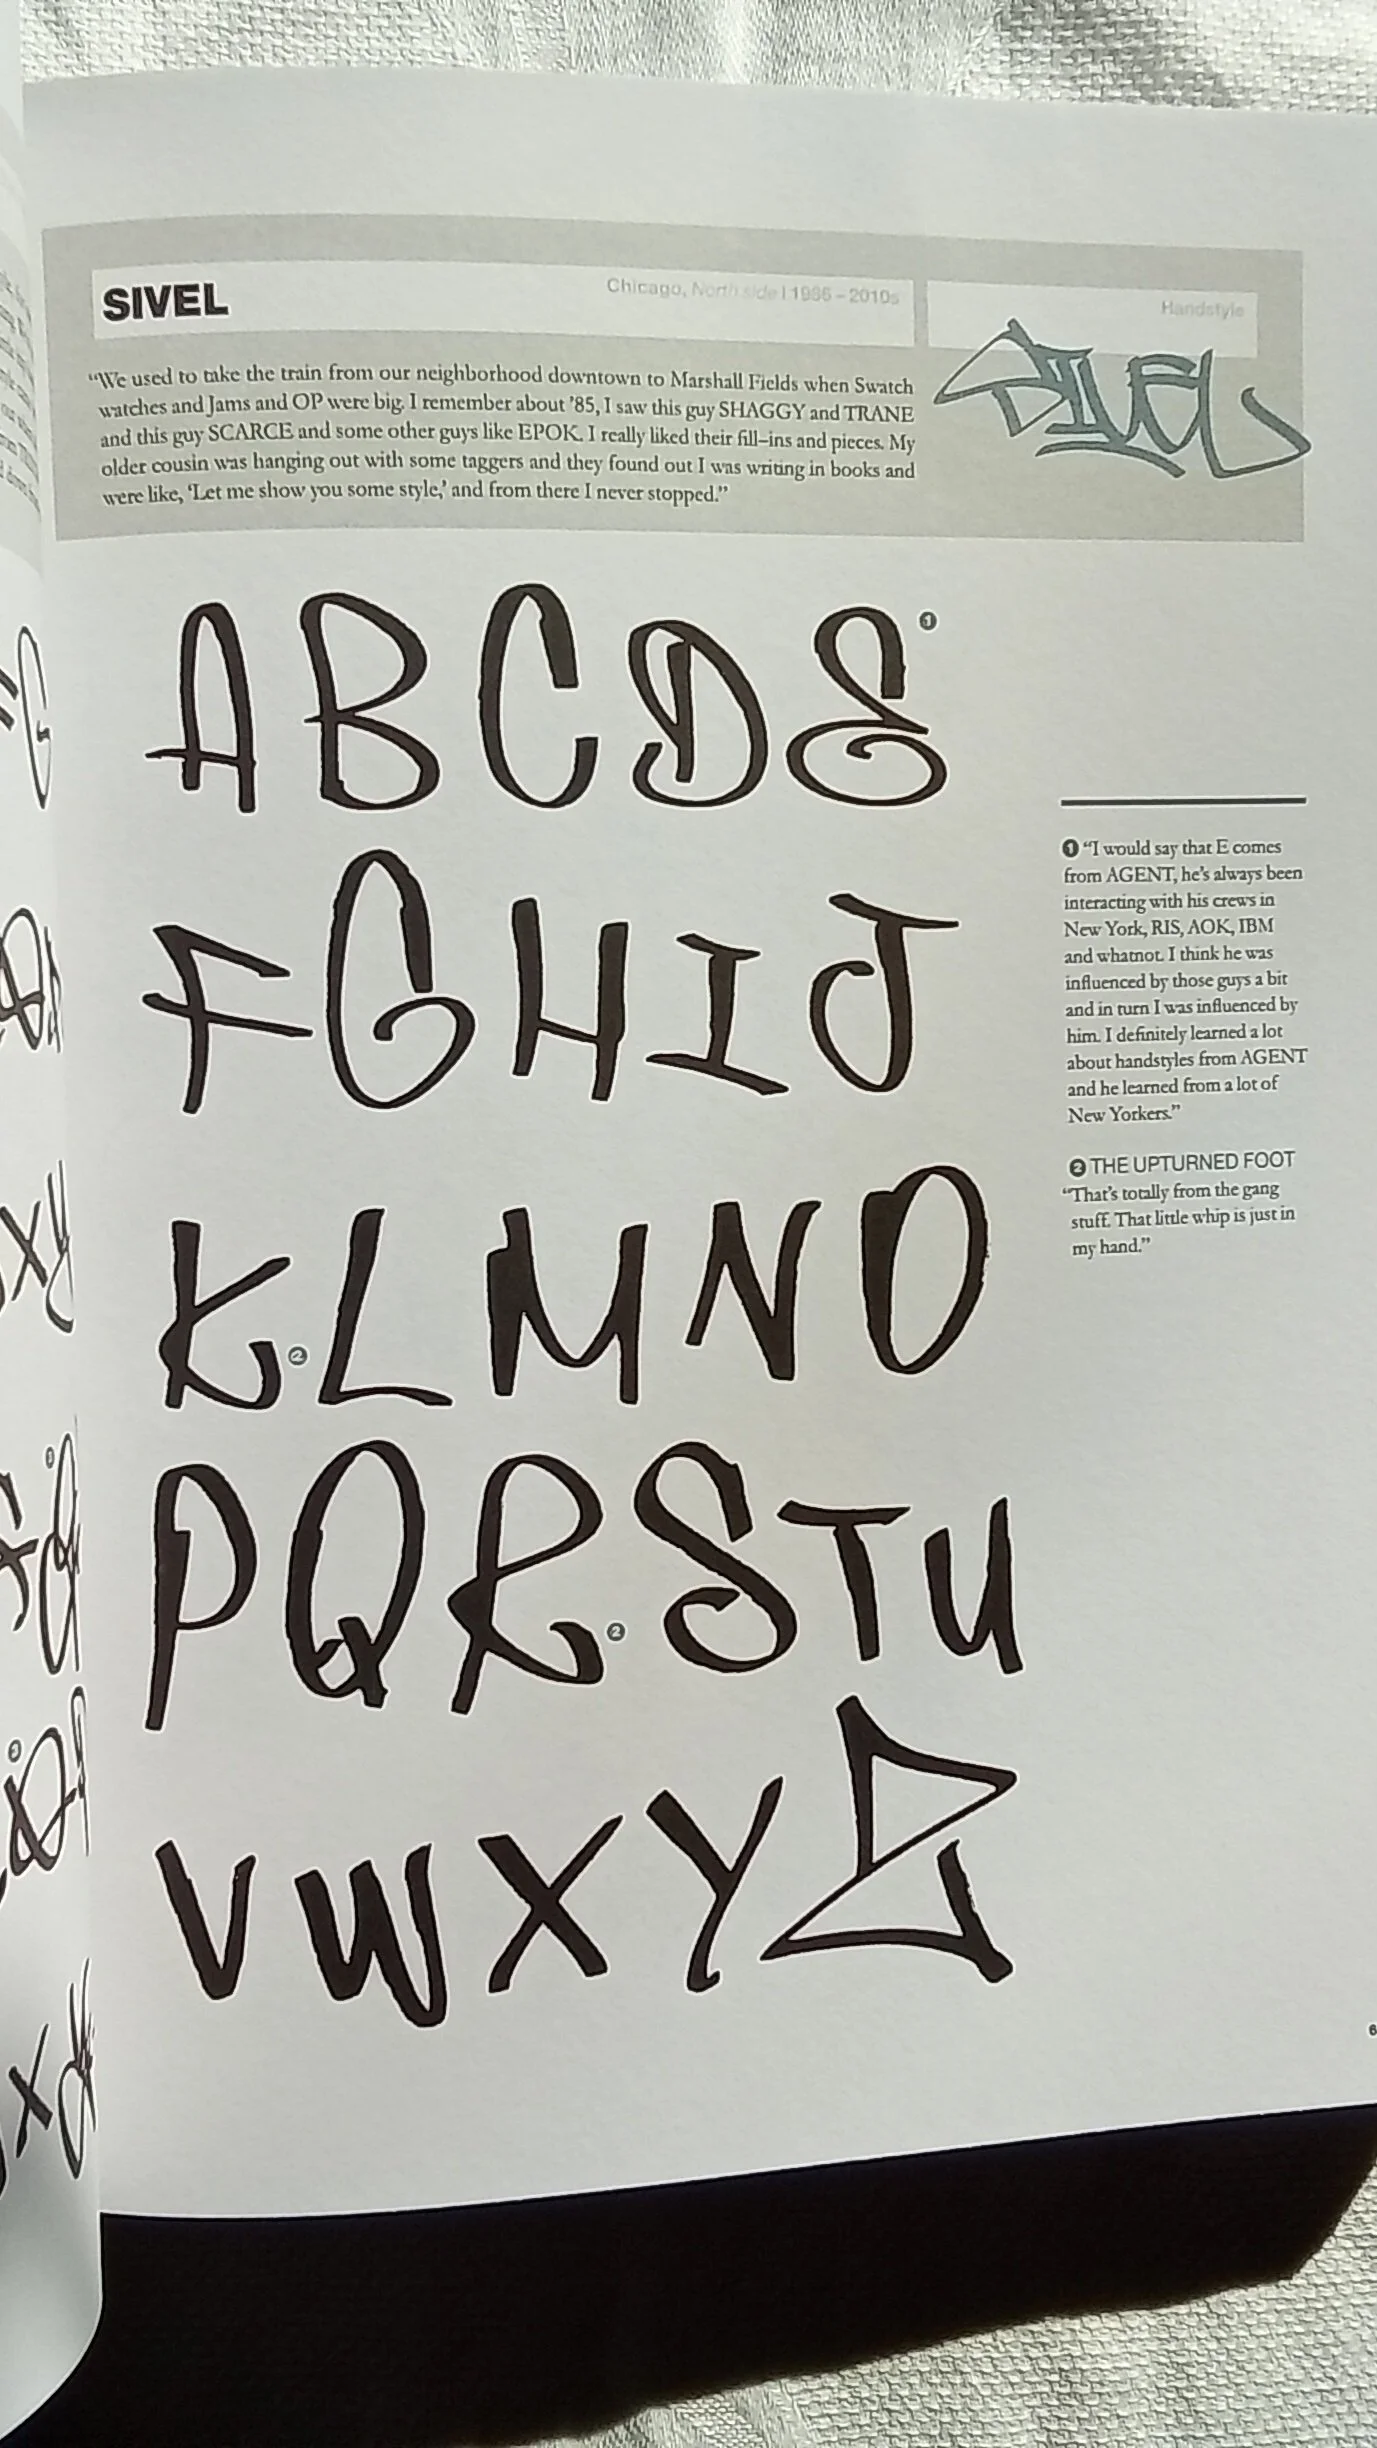 SIVEL
Chicago, North side | 1986 – 2010s
Handstyle
SIVEL
“We used to take the train from our neighborhood downtown to Marshall Fields when Swatch
watches and Jams and OP were big. I remember about ’85, I saw this guy SHAGGY and TRANE
and this guy SCARCE and some other guys like EPOK. I really liked their fill-ins and pieces. My
older cousin was hanging out with some taggers and they found out I was writing in books and
were like, ‘Let me show you some style,’ and from there I never stopped.”
A B C D E 1
F G H I J
K 2 L M N O
P Q R 2 S T U
V W X Y Z
1 “I would say that E comes
from AGENT, he’s always been
interacting with his crews in
New York, RIS, AOK, IBM
and whatnot. I think he was
influenced by those guys a bit
and in turn I was influenced by
him. I definitely learned a lot
about handstyles from AGENT
and he learned from a lot of
New Yorkers.”
2 THE UPTURNED FOOT
“That’s totally from the gang
stuff. That little whip is just in
my hand.”
6